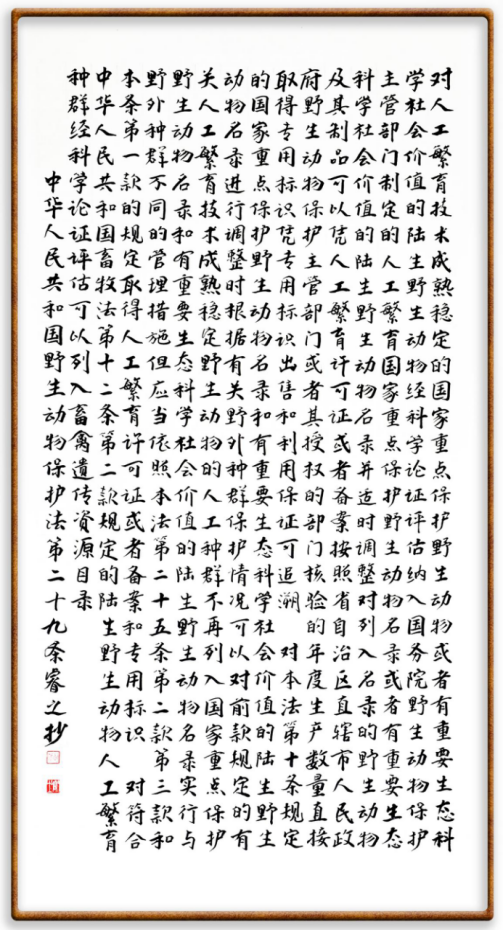 对人工繁育技术成熟稳定的国家重点保护野生动物或者有重要生态科
学社会价值的陆生野生动物经科学论证评估纳入国务院野生动物保护
主管部门制定的人工繁育国家重点保护野生动物名录或者有重要生态
科学社会价值的陆生野生动物名录并适时调整对列入名录的野生动物
及其制品可以凭人工繁育许可证或者备案按照省自治区直辖市人民政
府野生动物保护主管部门或者其授权的部门核验的年度生产数量直接
取得专用标识凭专用标识出售和利用保证可追溯 对本法第十条规定
的国家重点保护野生动物名录和有重要生态科学社会价值的陆生野生
动物名录进行调整时根据有关野外种群保护情况可以对前款规定的有
关人工繁育技术成熟稳定野生动物的人工种群不再列入国家重点保护
野生动物名录和有重要生态科学社会价值的陆生野生动物名录实行与
野外种群不同的管理措施但应当依照本法第二十五条第二款第三款和
本条第一款的规定取得人工繁育许可证或者备案和专用标识 对符合
中华人民共和国畜牧法第十二条第二款规定的陆生野生动物人工繁育
种群经科学论证评估可以列入畜禽遗传资源目录
中华人民共和国野生动物保护法第二十九条睿之抄